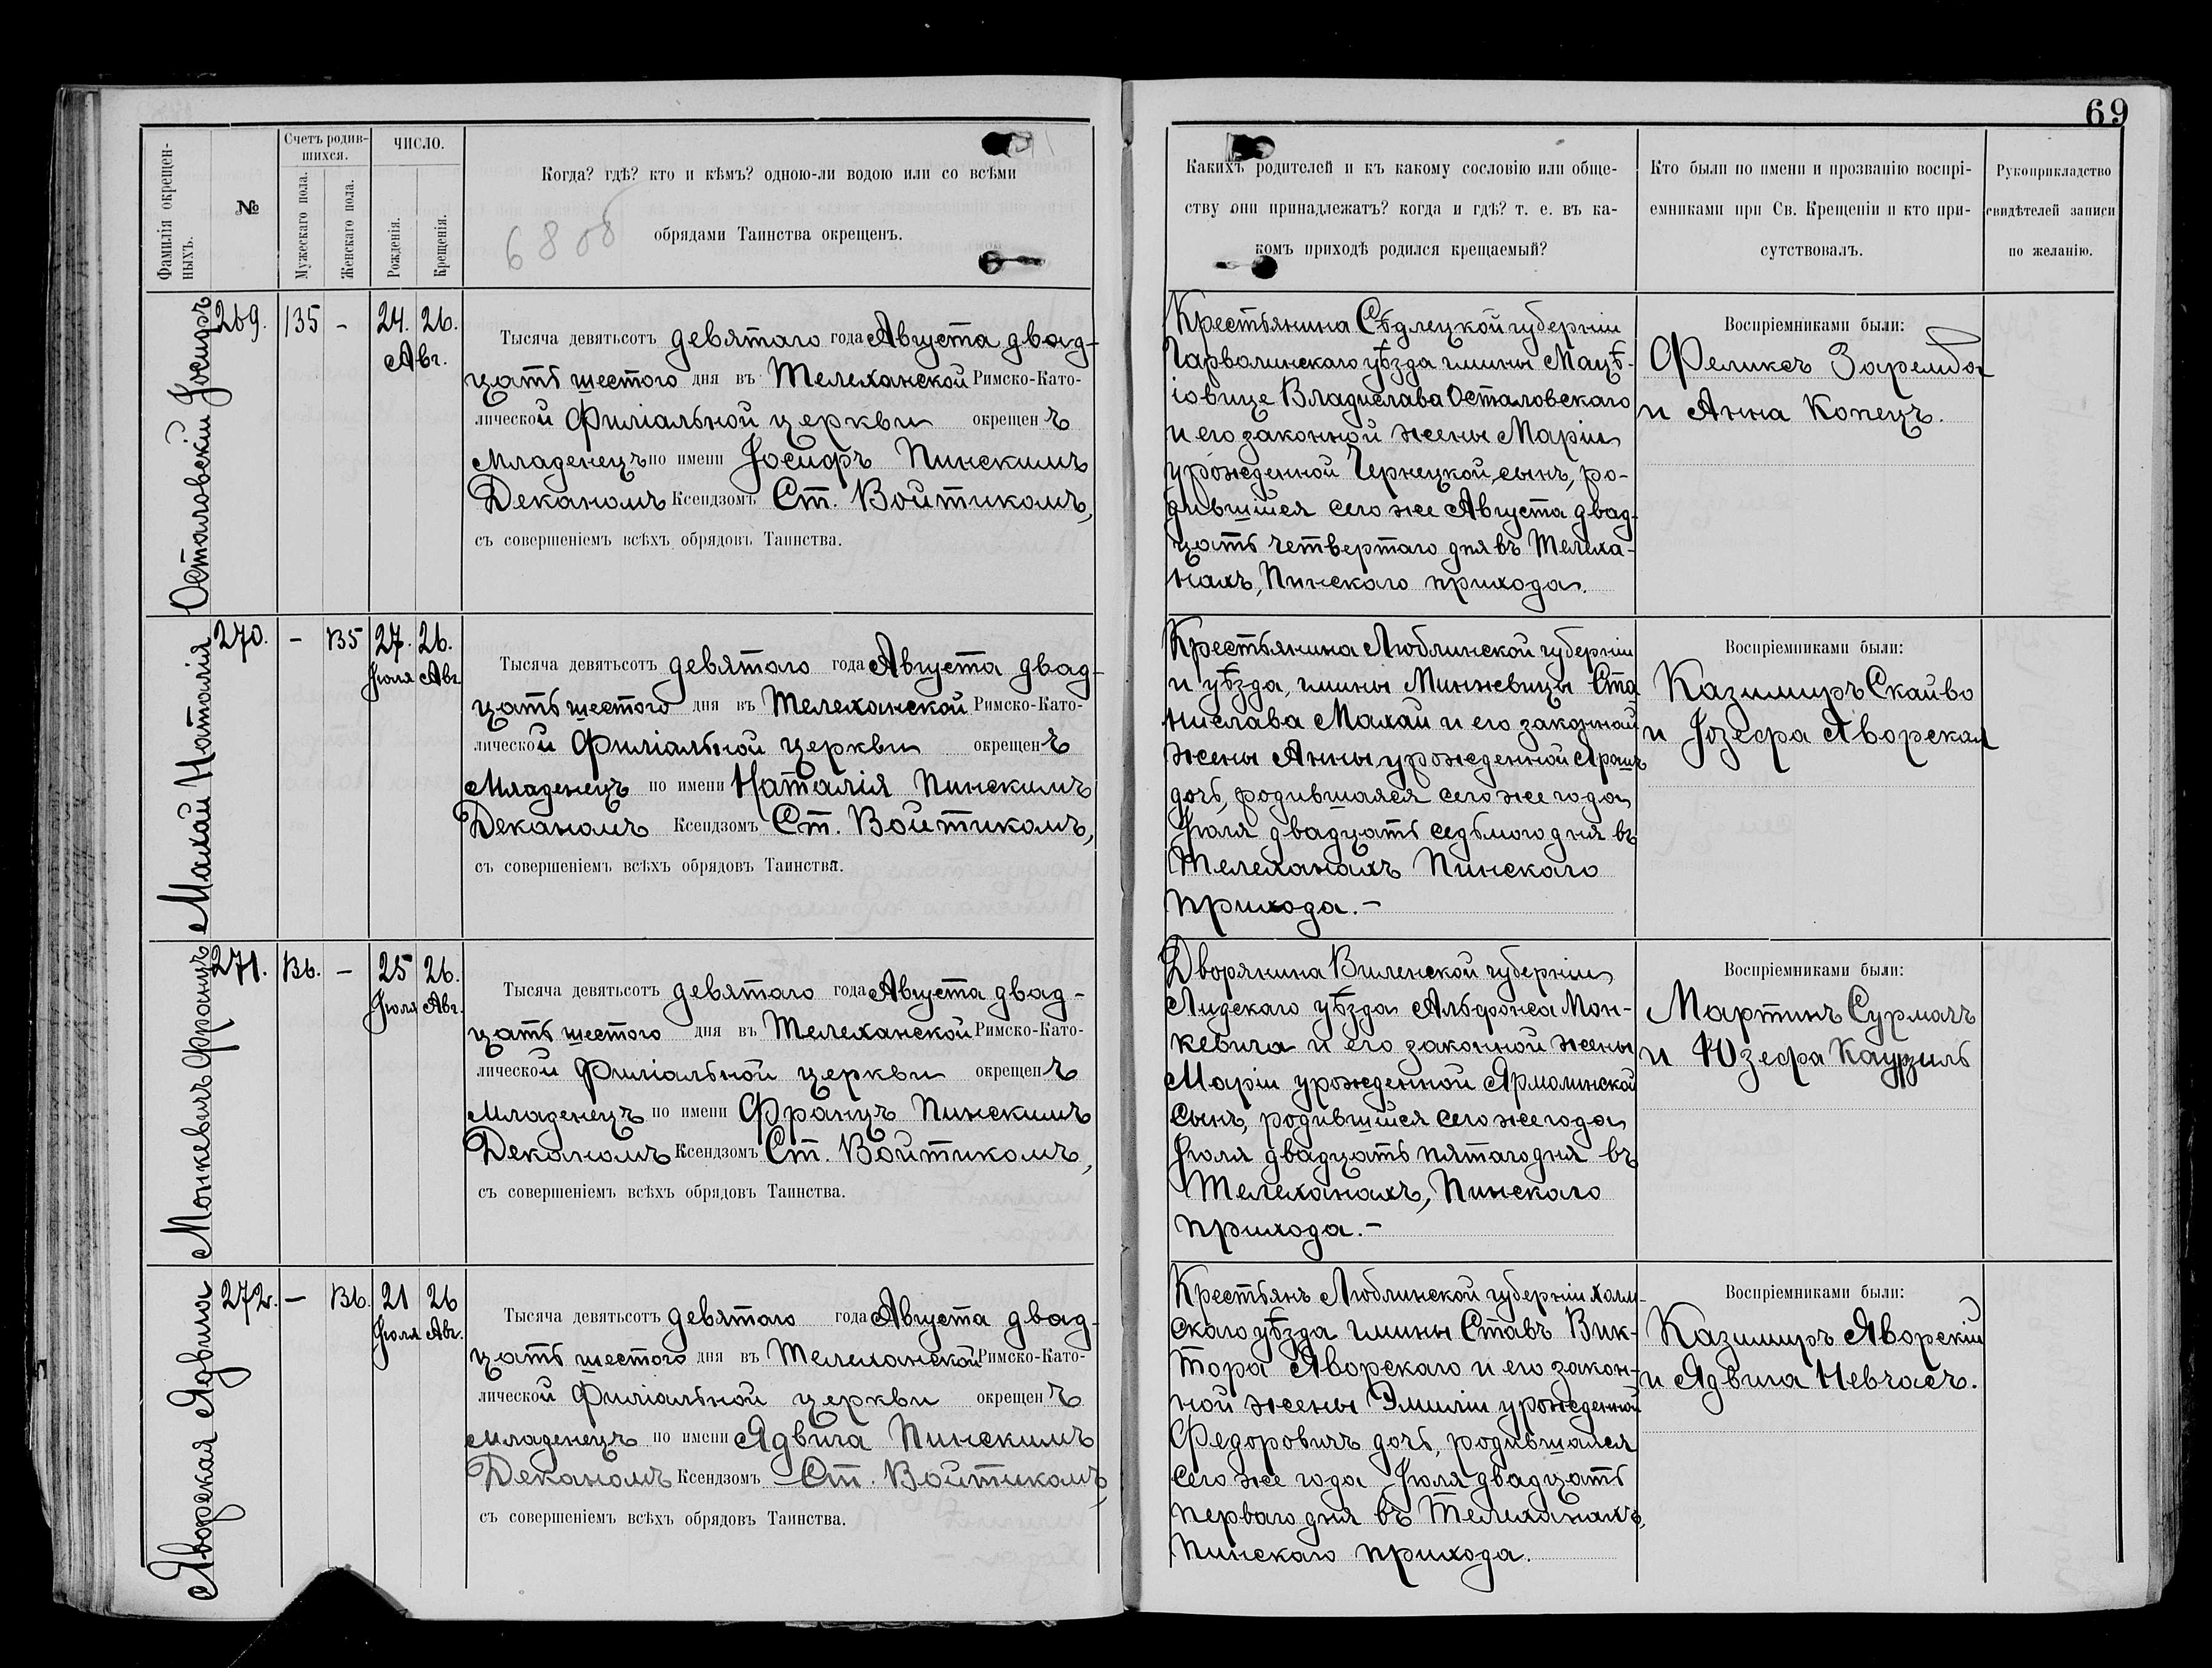 69
Фамилія окрещен-
ныхъ.
№
Счетъ родив-
шихся.
Мужескаго пола.
Женскаго пола.
ЧИСЛО.
Рожденія.
Крещенія.
Когда? гдѣ? кто и кѣмъ? одною-ли водою или со всѣми
обрядами Таинства окрещенъ.
Какихъ родителей и къ какому сословію или обще-
ству они принадлежатъ? когда и гдѣ? т. е. въ ка-
комъ приходѣ родился крещаемый?
Кто были по имени и прозванію воспрі-
емниками при Св. Крещеніи и кто при-
сутствовалъ.
Рукоприкладство
свидѣтелей записи
по желанію.
Осталовскій Іосифъ
269. 135 - 24. 26.
Авг.
Тысяча девятьсотъ девятаго года Августа двад-
цать шестого дня въ Телеханской Римско-Като-
лической Филіальной церкви окрещенъ
младенецъ по имени Іосифъ Пинскимъ
Деканомъ Ксендзомъ Ст. Войтикомъ,
съ совершеніемъ всѣхъ обрядовъ Таинства.
Крестьянина Сѣдлецкой губерніи
Гарволинскаго уѣзда гмины Мацѣ-
іовице Владислава Осталовскаго
и его законной жены Маріи
урожденной Чернецкой, сынъ, ро-
дившійся сего же Августа двад-
цать четвертаго дня въ Телеха-
нахъ, Пинскаго прихода.
Воспріемниками были:
Феликсъ Заремба
и Анна Копецъ.
Махай Наталія
270. - 135 27. 26.
Іюля Авг.
Тысяча девятьсотъ девятаго года Августа двад-
цать шестого дня въ Телеханской Римско-Като-
лической Филіальной церкви окрещенъ
младенецъ по имени Наталія Пинскимъ
Деканомъ Ксендзомъ Ст. Войтикомъ,
съ совершеніемъ всѣхъ обрядовъ Таинства.
Крестьянина Люблинской губерніи
и уѣзда, гмины Минжевицы Ста
нислава Махай и его законной
жены Анны урожденной
дочь, родившаяся сего же года
Іюля двадцать седьмого дня въ
Телеханахъ Пинскаго
прихода.-
Воспріемниками были:
Казимиръ Скайво
и Іозефа Яворская
Монкевичъ Францъ
271. 136. - 25 26.
Іюля Авг.
Тысяча девятьсотъ девятаго года Августа двад-
цать шестого дня въ Телеханской Римско-Като-
лической Филіальной церкви окрещенъ
младенецъ по имени Францъ Пинскимъ
Деканомъ Ксендзомъ Ст. Войтикомъ,
съ совершеніемъ всѣхъ обрядовъ Таинства.
Дворянина Виленской губерніи
Лидскаго уѣзда Альфонса Мон-
кевича и его законной жены
Маріи урожденной Ярмолинской
сынъ, родившійся сего же года
Іюля двадцать пятаго дня въ
Телеханахъ, Пинскаго
прихода.-
Воспріемниками были:
Мартинъ Сурмачъ
и Юзефа Каурзиль
Яворская Ядвига
272. - 136. 21 26
Іюля Авг.
Тысяча девятьсотъ девятаго года Августа двад-
цать шестого дня въ Телеханской Римско-Като-
лической Филіальной церкви окрещенъ
младенецъ по имени Ядвига Пинскимъ
Деканомъ Ксендзомъ Ст. Войтикомъ,
съ совершеніемъ всѣхъ обрядовъ Таинства.
Крестьянъ Люблинской губерніи Холм-
скаго уѣзда гмины Ставъ Вик-
тора Яворскаго и его закон-
ной жены Эмиліи урожденной
Федоровичъ дочь, родившаяся
сего же года Іюля двадцать
перваго дня въ Телеханахъ,
Пинскаго прихода.
Воспріемниками были:
Казимиръ Яворскій
и Ядвига Невчасъ.